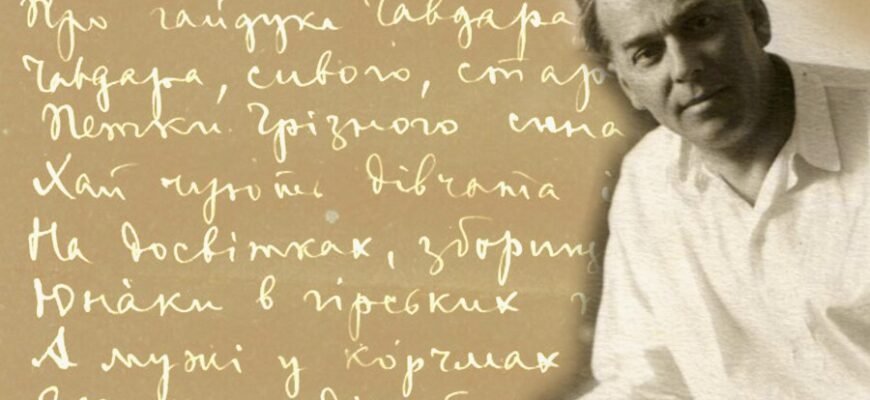 Про гайдука Чавдара
Чавдара, сивого, старо
Петки Грізного сина
Хай чують дівчата і
На досвітках, зборищ
Юна̀ки в гірських
А мужі у ко́рчмах